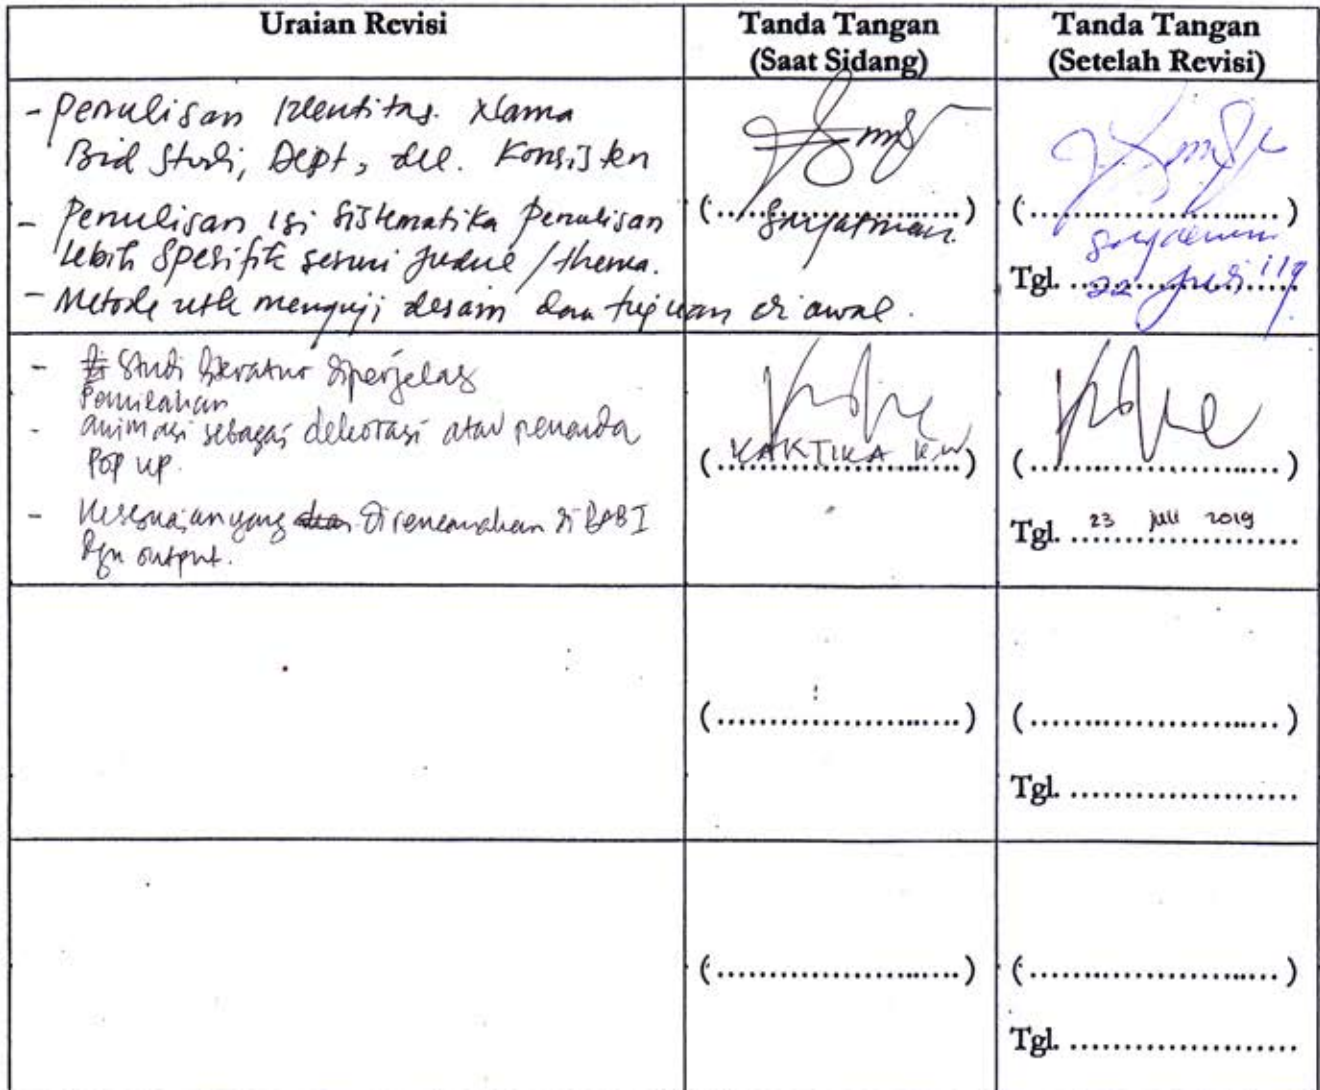 Uraian Revisi
Tanda Tangan
(Saat Sidang)
Tanda Tangan
(Setelah Revisi)
- Penulisan Identitas. Nama
Bid Studi, Dept, dll. Konsisten
- Penulisan isi Sistematika penulisan
lebih Spesifik sesuai judul / thema.
- Metode utk menguji desain dan tujuan di awal.
(......................)
Suryatman.
(......................)
Tgl. 22 Juli '19
- Studi literatur diperjelas
Pemilahan
- animasi sebagai dekorasi atau penanda
Pop up.
- Kesesuaian yang direncanakan di BAB I
dgn output.
KAKTIKA K.W
(......................)
(......................)
Tgl. 23 juli 2019
(......................)
(......................)
Tgl. ....................
(......................)
(......................)
Tgl. ....................